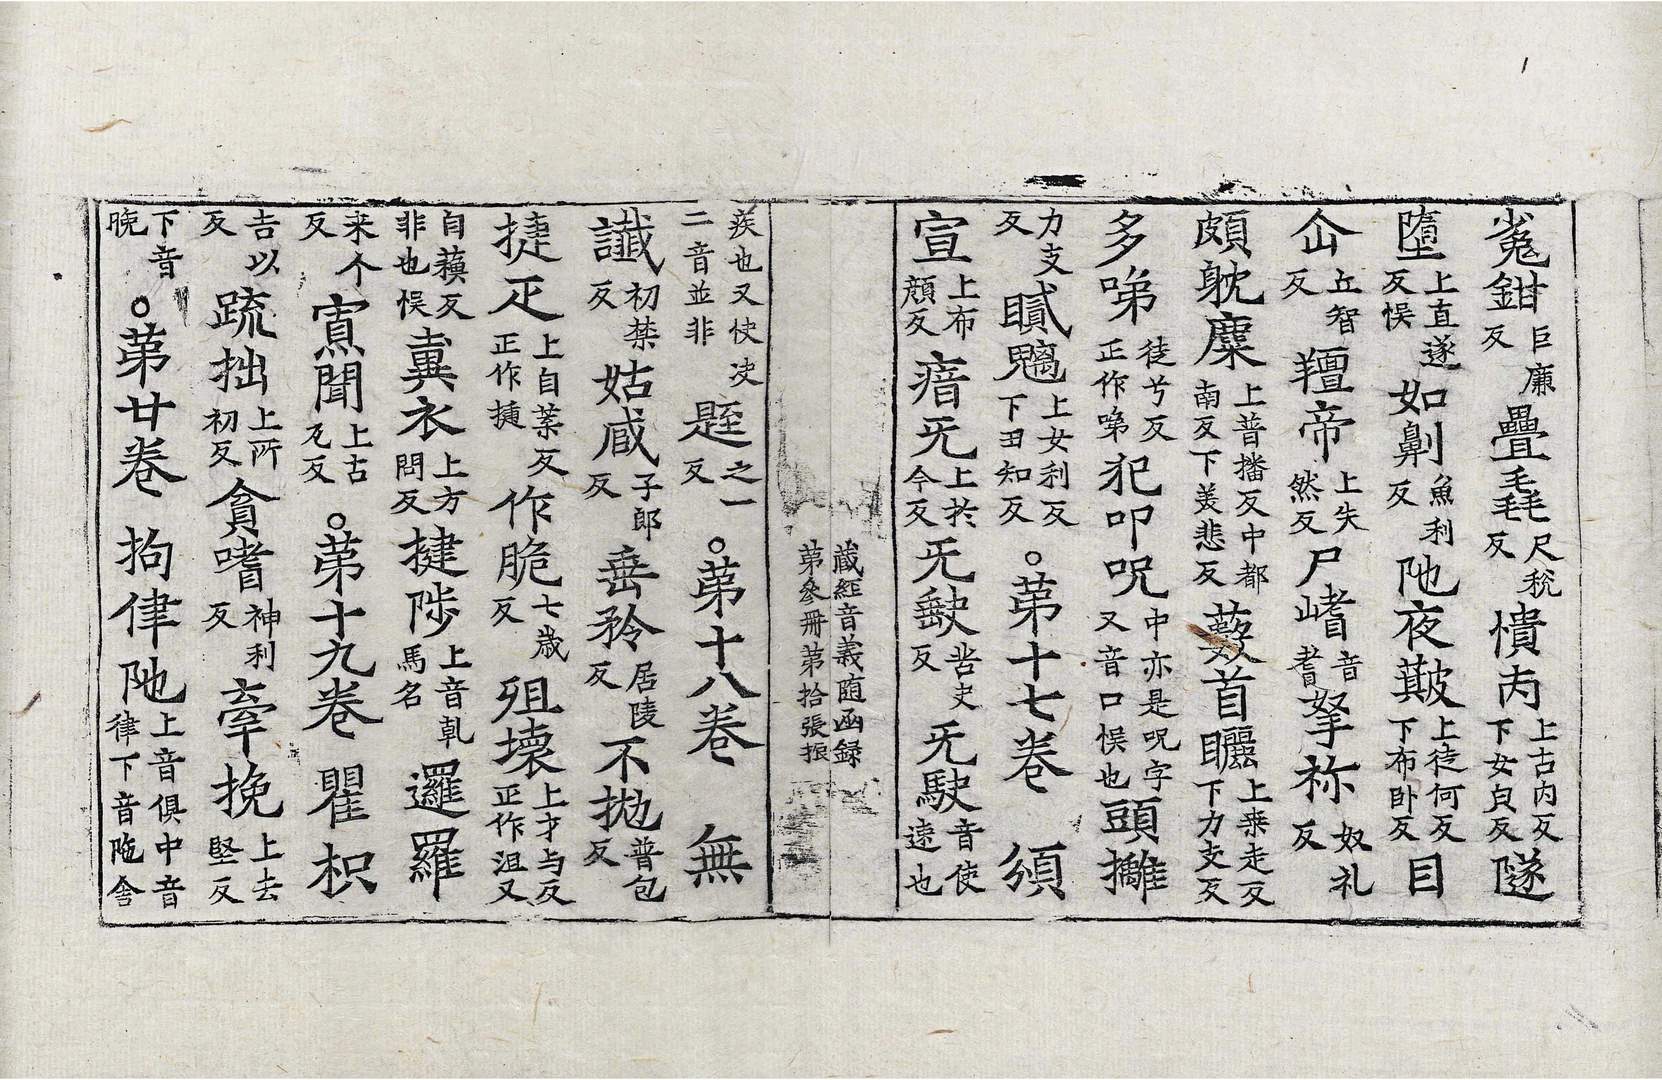 嵬鉗巨廉反疊毳尺稅反憒丙上古内反下女皃反隧
墮上直遂反悮如劓魚利反阤夜䩜上徒何反下布卧反目
仚丘智反羶帝上失然反尸嵴音耆拏祢奴礼反
頗躭麋上普播反中都南反下美悲反薮首矖上桒走反下力支反
多㖒徒兮反正作㖒犯叩呪中亦是呪字又音口悮也頭攡
力支反贃魑上女利反下丑知反○苐十七卷 須
宣上布顔反瘖旡上於今反旡𡙇甞史反旡駛音使遠也
蔵經音義随函録
苐參冊苐拾張振
疾也又怏决二音並非 踁之一反○苐十八卷 無
讖初禁反姑戚子郎反𡸁矜居陵反不拋普包反
捷疋上自葉反正作㨗作脆七歳反殂壊上才与反正作沮又
自蘋反非也悮糞衣上方問反揵陟上音乹馬名邏羅
来个反寊閙上古瓦反○苐十九卷 瞿枳
吉以反䟽拙上所初反貪嗜神利反牽挽上去堅反
下音晚○苐廿卷 拘律阤上音俱中音律下音陁舎